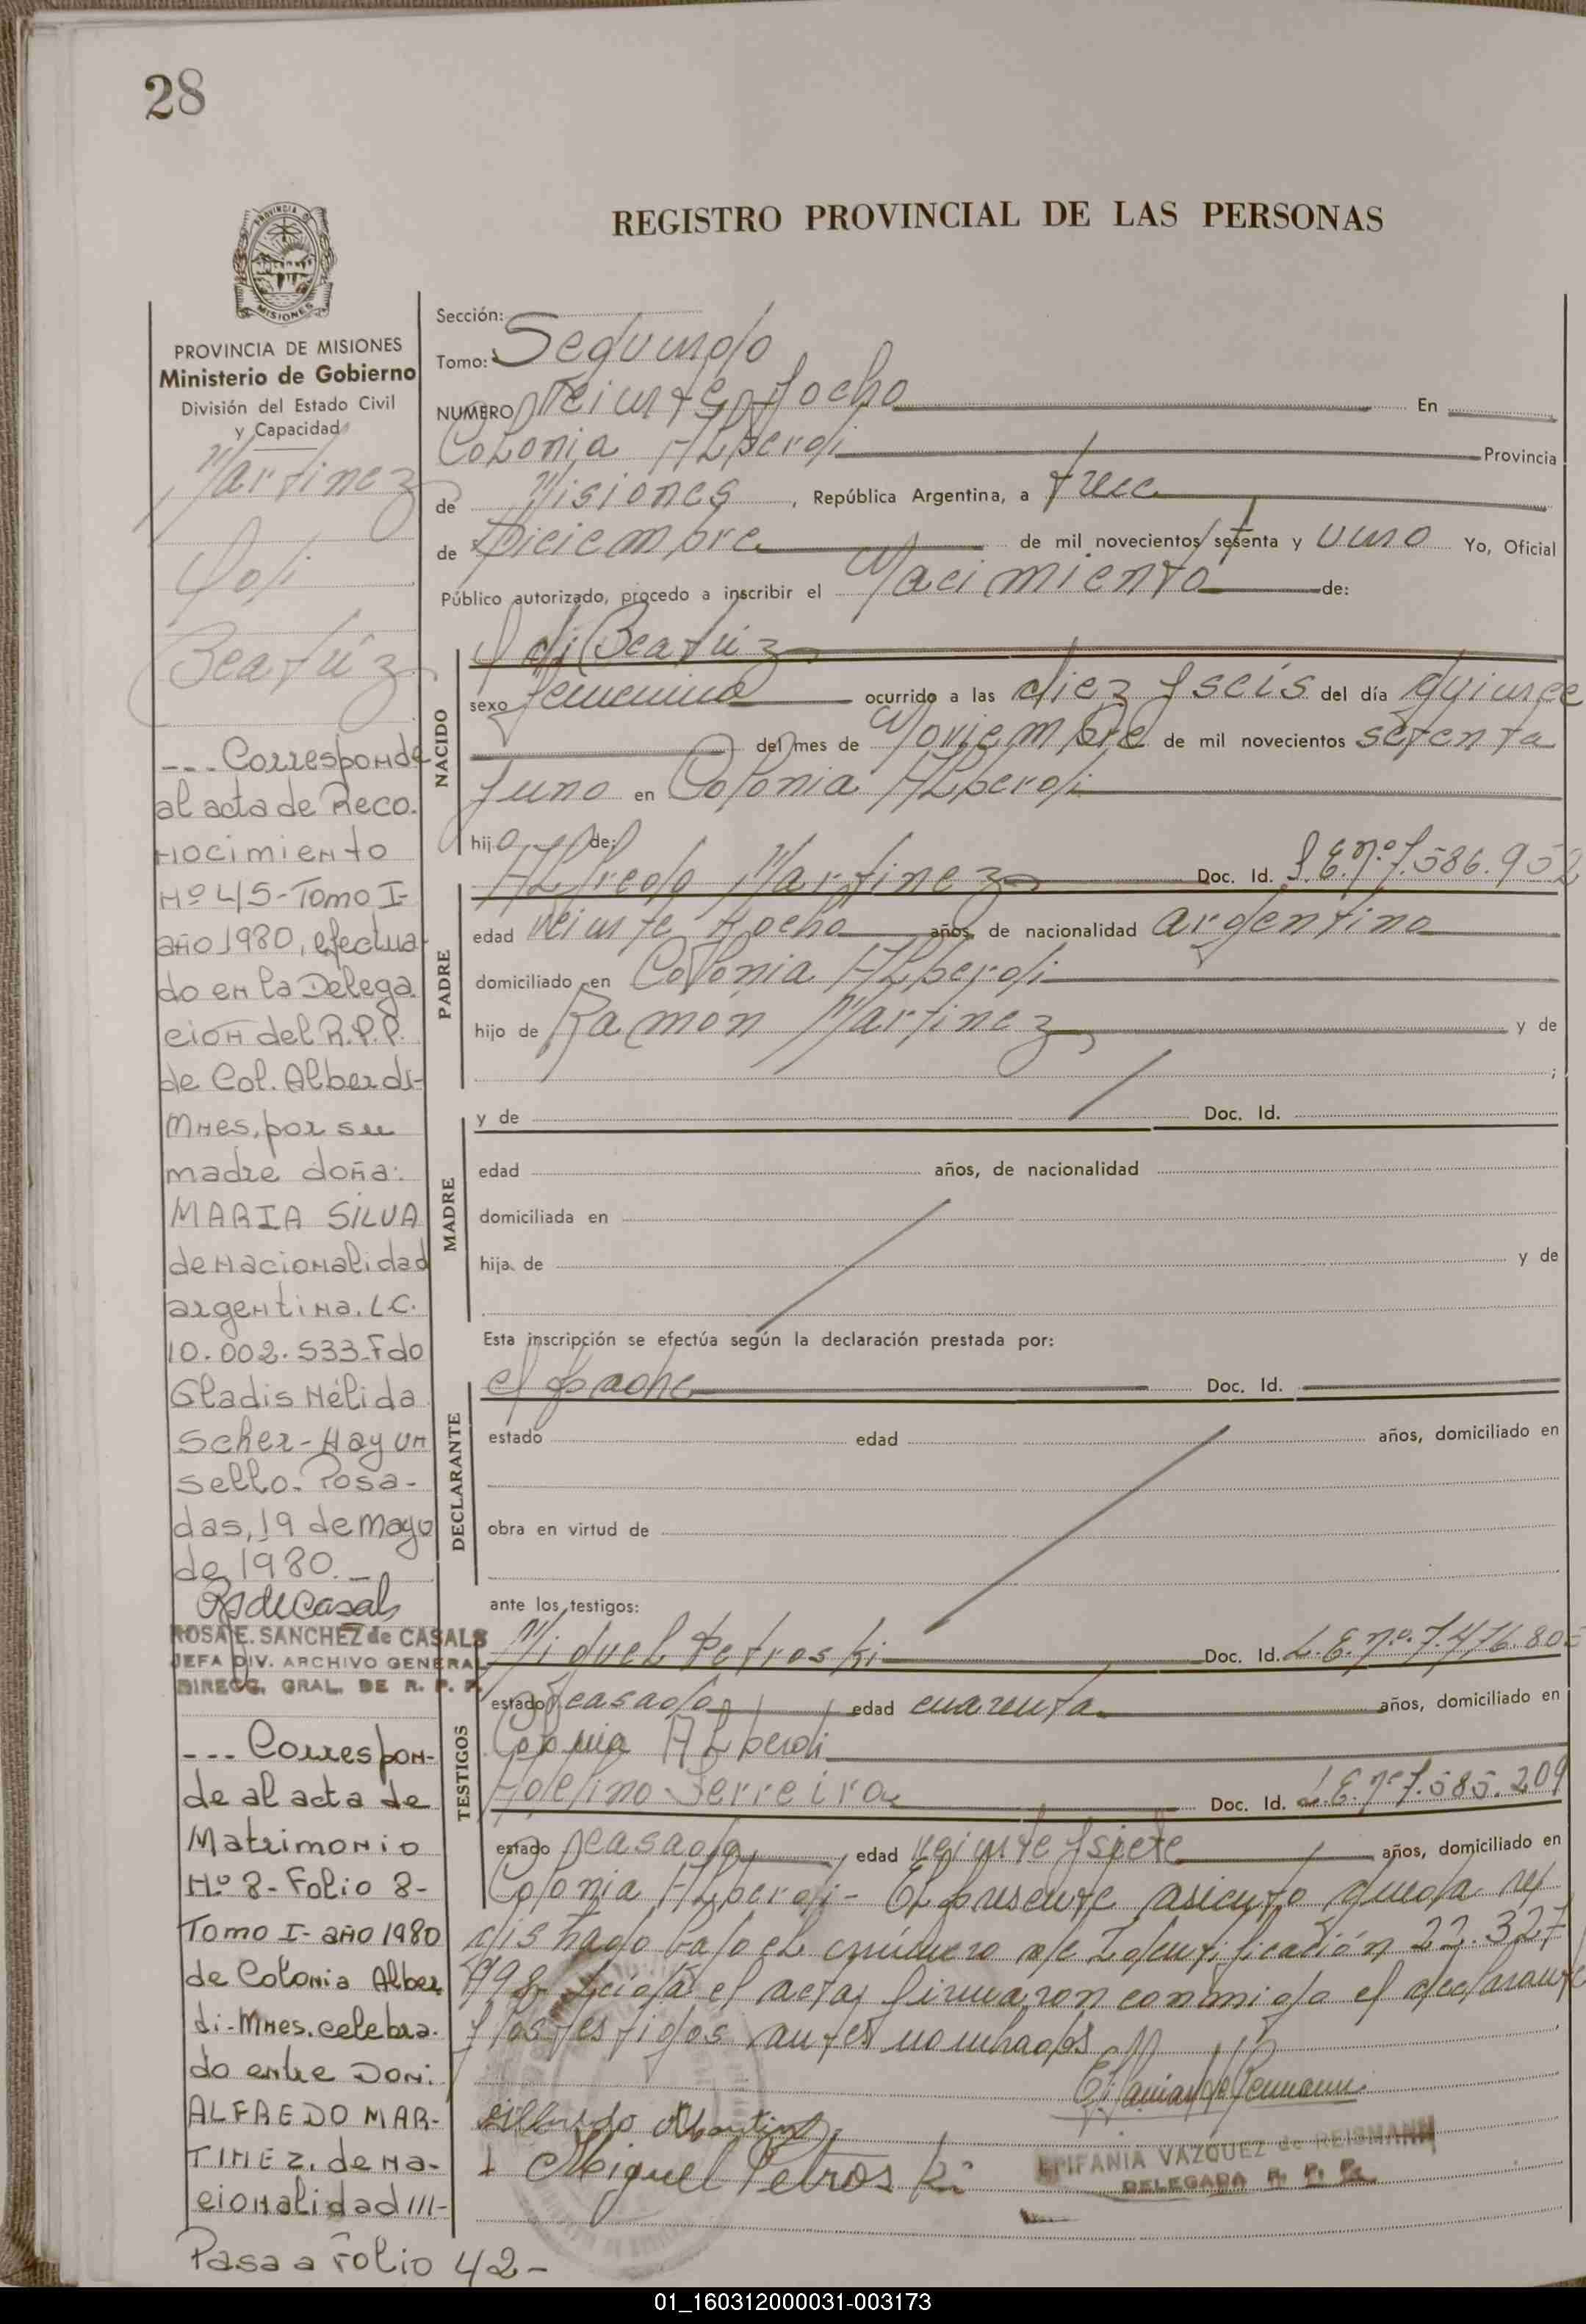 28
REGISTRO PROVINCIAL DE LAS PERSONAS
PROVINCIA DE MISIONES
Ministerio de Gobierno
División del Estado Civil
y Capacidad
Martinez
Beatríz
--- Corresponde
al acta de Reco.
nocimiento
Nº 45-Tomo I-
año 1980, efectua-
do en la Delega.
ción del R.P.P.
de Col. Alberdi-
Mnes, por su
madre doña:
MARIA SILVA
de nacionalidad
argentina. L.C.
10.002.533-Fdo
Gladis Nélida
Scher-Hay un
sello. Posa-
das, 19 de mayo
de 1980.-
RSdeCasals
ROSA E. SANCHEZ de CASALS
JEFA DIV. ARCHIVO GENERAL
DIRECC. GRAL. DE R. P. P.
--- Correspon-
de al acta de
Matrimonio
Nº 8-Folio 8-
Tomo I-año 1980
de Colonia Alber
di-Mnes. celebra.
do entre Don:
ALFREDO MAR-
TINEZ, de na-
cionalidad ///-
Pasa a Folio 42-
Sección:
Tomo: Segundo
NUMERO Veinte y ocho En
Colonia Alberdi Provincia
de Misiones, República Argentina, a trece
de Diciembre de mil novecientos setenta y uno Yo, Oficial
Público autorizado, procedo a inscribir el Nacimiento de:
Beatríz
NACIDO
sexo femenino ocurrido a las diez y seis del día quince
del mes de Noviembre de mil novecientos setenta
y uno en Colonia Alberdi
hijo de:
PADRE
Alfredo Martinez Doc. Id. L.E.nº.7.586.952
edad veinte y ocho años, de nacionalidad argentino
domiciliado en Colonia Alberdi
hijo de Ramón Martinez y de
;
MADRE
y de Doc. Id.
edad años, de nacionalidad
domiciliada en
hija de y de
Esta inscripción se efectúa según la declaración prestada por:
DECLARANTE
el padre Doc. Id.
estado edad años, domiciliado en
obra en virtud de
ante los testigos:
TESTIGOS
Miguel Petroski Doc. Id. L.E.nº.7.476.80
estado casado edad cuarenta años, domiciliado en
Colonia Alberdi
Adelino Ferreira Doc. Id. L.E.nº7.585.209
estado casado, edad veinte y siete años, domiciliado en
Colonia Alberdi- El presente asiento queda re
gistrado bajo el número de Identificación 22.327
998 leída el acta, firmaron conmigo el declarante
y los testigos antes nombrados
Miguel Petroski
EPIFANIA VAZQUEZ de REISMANN
DELEGADA R. P. P.
01_160312000031-003173